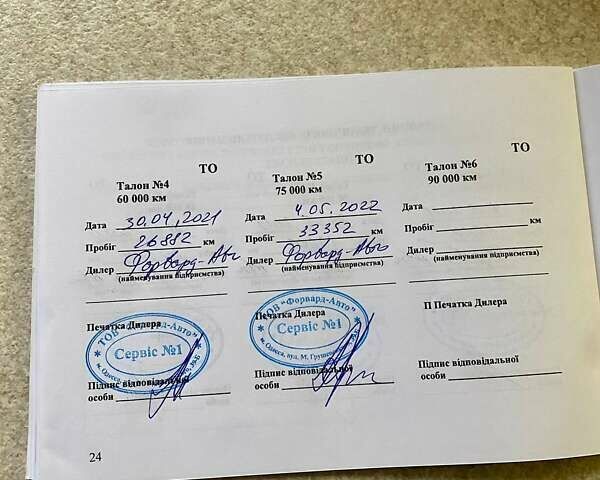 ТО
Талон №4
60 000 км
Дата 30.04.2021
Пробіг 26882 км
Дилер Форвард-Авто
(найменування підприємства)
Печатка Дилера
ТОВ "Форвард-Авто"
Сервіс №1
м. Одеса,
Підпис відповідальної
особи
ТО
Талон №5
75 000 км
Дата 4.05.2022
Пробіг 33352 км
Дилер Форвард-Авто
(найменування підприємства)
Печатка Дилера
ТОВ "Форвард-Авто"
Сервіс №1
м. Одеса, вул. М. Груше
Підпис відповідальної
особи
ТО
Талон №6
90 000 км
Дата
Пробіг км
Дилер
(найменування підприємства)
П Печатка Дилера
Підпис відповідальної
особи
24